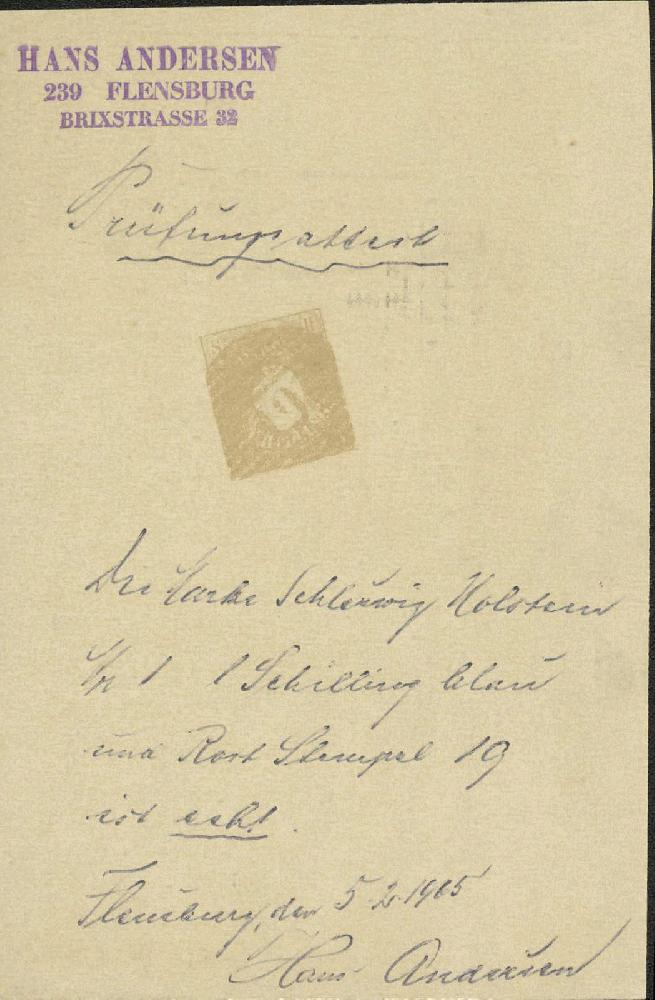 HANS ANDERSEN
239 FLENSBURG
BRIXSTRASSE 32
Prüfungsattest
Die Marke Schleswig Holstein
Nr 1 1 Schilling blau
und Rost Stempel 19
ist echt.
Flensburg, den 5.2.1965
Hans Andersen